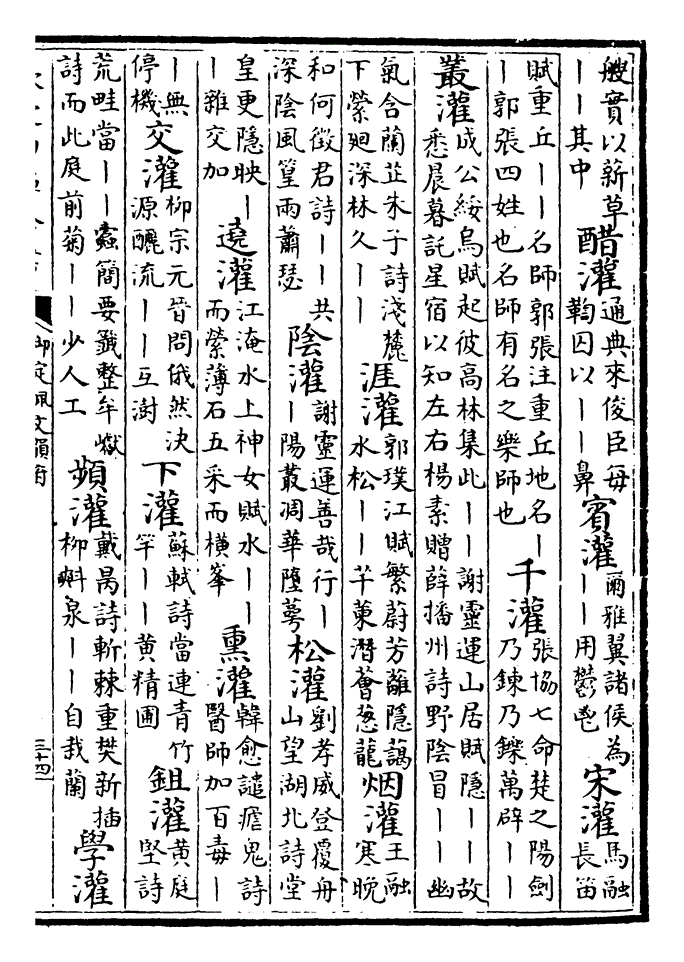 艘實以薪草
——其中
醋灌
通典來俊臣每
鞫囚以——鼻
賓灌
爾雅翼諸侯為
——用鬱鬯
宋灌
馬融
長笛
賦重丘——名師郭張注重丘地名—
—郭張四姓也名師有名之樂師也
千灌
張協七命楚之陽劍
乃鍊乃鑠萬辟——
叢灌
成公綏烏賦起彼高林集此——謝靈運山居賦隱——故
悉晨暮託星宿以知左右楊素贈薛播州詩野陰冒——幽
氣含蘭芷朱子詩淺麓
下縈廻深林久——
涯灌
郭璞江賦繁蔚芳蘺隱藹
水松——芊萰潛薈葱蘢
烟灌
王融
寒晚
和何徵君詩——共
深陰風篁雨蕭瑟
陰灌
謝靈運善哉行—
—陽叢凋華墮萼
松灌
劉孝威登覆舟
山望湖北詩堂
皇更隱映—
—雜交加
遶灌
江淹水上神女賦水——
而縈薄石五采而橫峯
熏灌
韓愈譴瘧鬼詩
醫師加百毒—
—無
停機
交灌
柳宗元晉問俄然決
源釃流——互澍
下灌
蘇軾詩當連青竹
竿——黃精圃
鉏灌
黃庭
堅詩
荒畦當——蠹簡要籤整牟巘
詩而此庭前菊——少人工
頻灌
戴昺詩斬棘重樊新插
柳斛泉——自栽蘭
學灌
御定佩文韻府
三十四